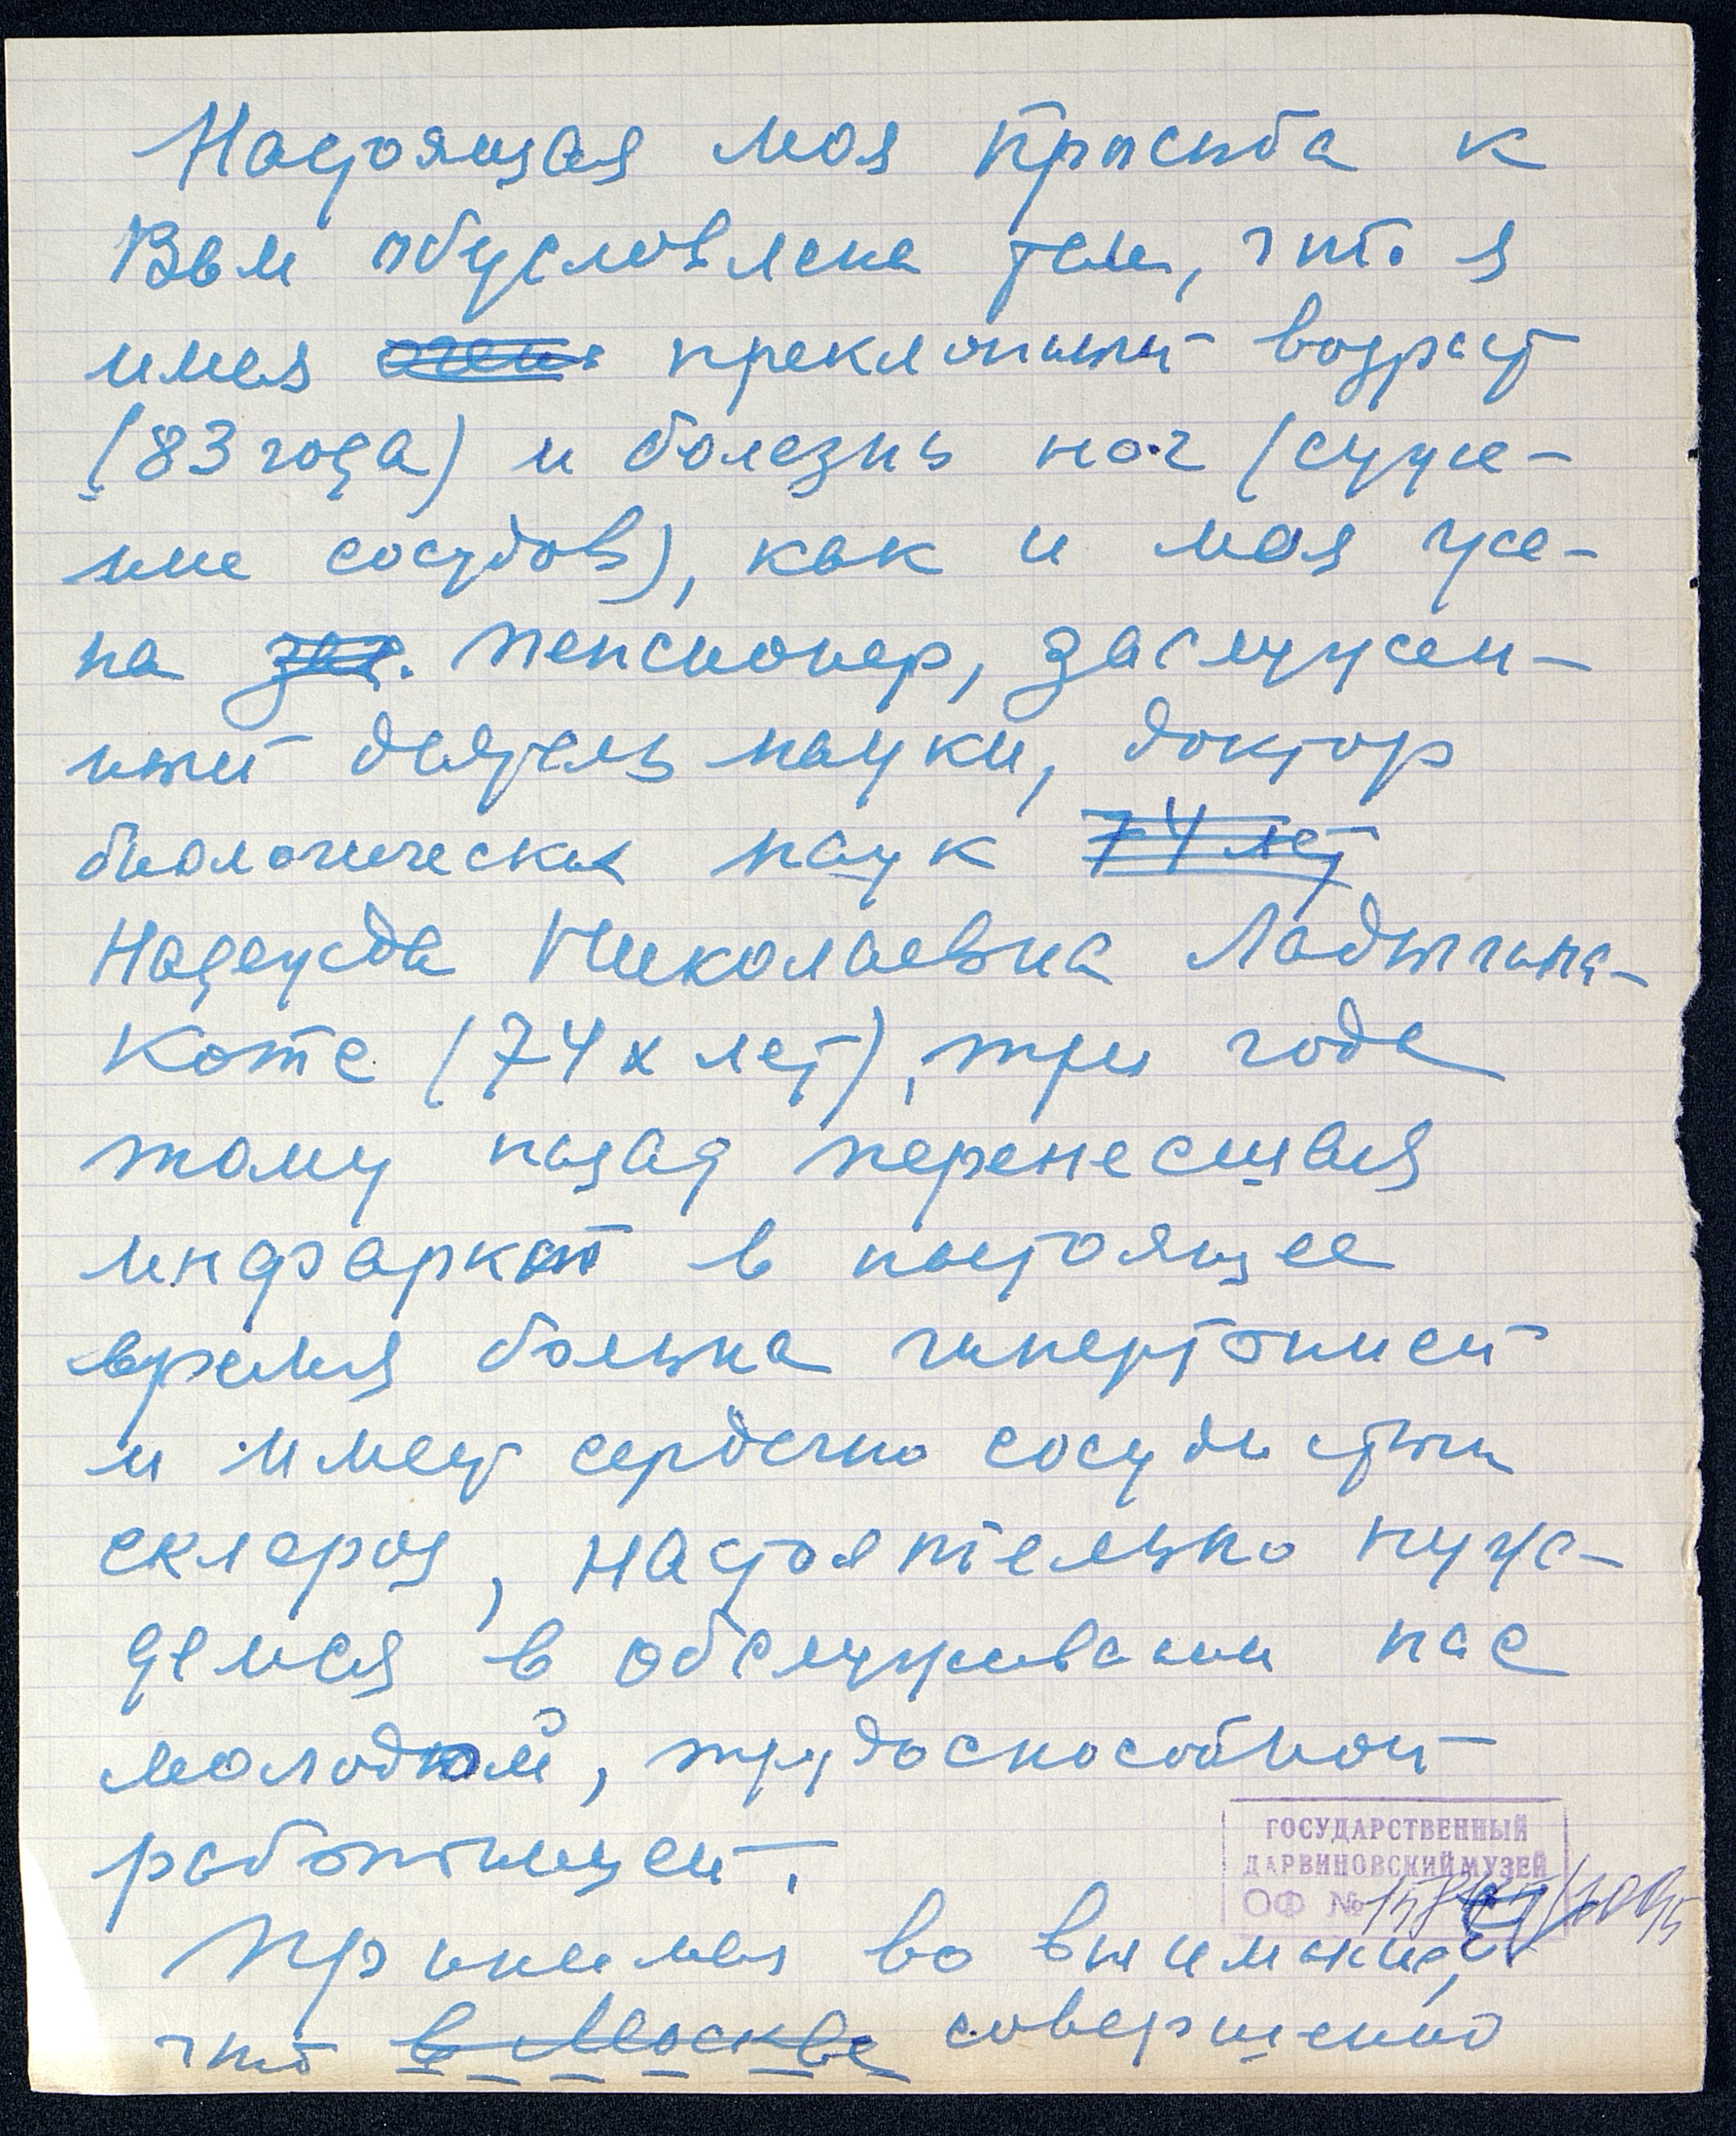 Настоящая моя просьба к
Вам обусловлена тем, что я
имея очень преклонный возраст
(83 года) и болезнь ног (суже-
ние сосудов), как и моя же-
на зас. пенсионер, заслужен-
ный деятель науки, доктор
биологических наук 74 лет
Надежда Николаевна Ладыгина-
Котс (74х лет), три года
тому назад перенесшая
инфаркт в настоящее
время больна гипертонией
и имеет сердечно сосудистый
склероз, настоятельно нуж-
демся в обслуживании нас
молодой, трудоспособной
работницей.
ГОСУДАРСТВЕННЫЙ
ДАРВИНОВСКИЙ МУЗЕЙ
ОФ №
Принимая во внимание,
что в Москве совершенно